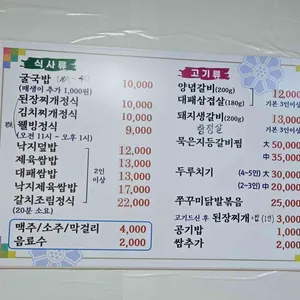 식사류
굴국밥 10,000
(매생이 추가 1,000원)
된장찌개정식 10,000
김치찌개정식 10,000
웰빙정식 9,000
(오전 11시 ~ 오후 1시)
낙지덮밥 12,000
제육쌈밥 13,000
대패쌈밥 2인 이상 13,000
낙지제육쌈밥 17,000
갈치조림정식 22,000
(20분 소요)
맥주/소주/막걸리 4,000
음료수 2,000
고기류
양념갈비(200g) 12,000
대패삼겹살(180g) 기본 3인이상
돼지생갈비(200g) 13,000
기본 3인이상
묵은지등갈비찜 大 50,000
中 35,000
두루치기 (4~5인) 大 30,000
(2~3인) 中 20,000
쭈꾸미닭발볶음 25,000
고기드신 후 된장찌개+밥(1인) 3,000
공기밥 1,000
쌈추가 2,000